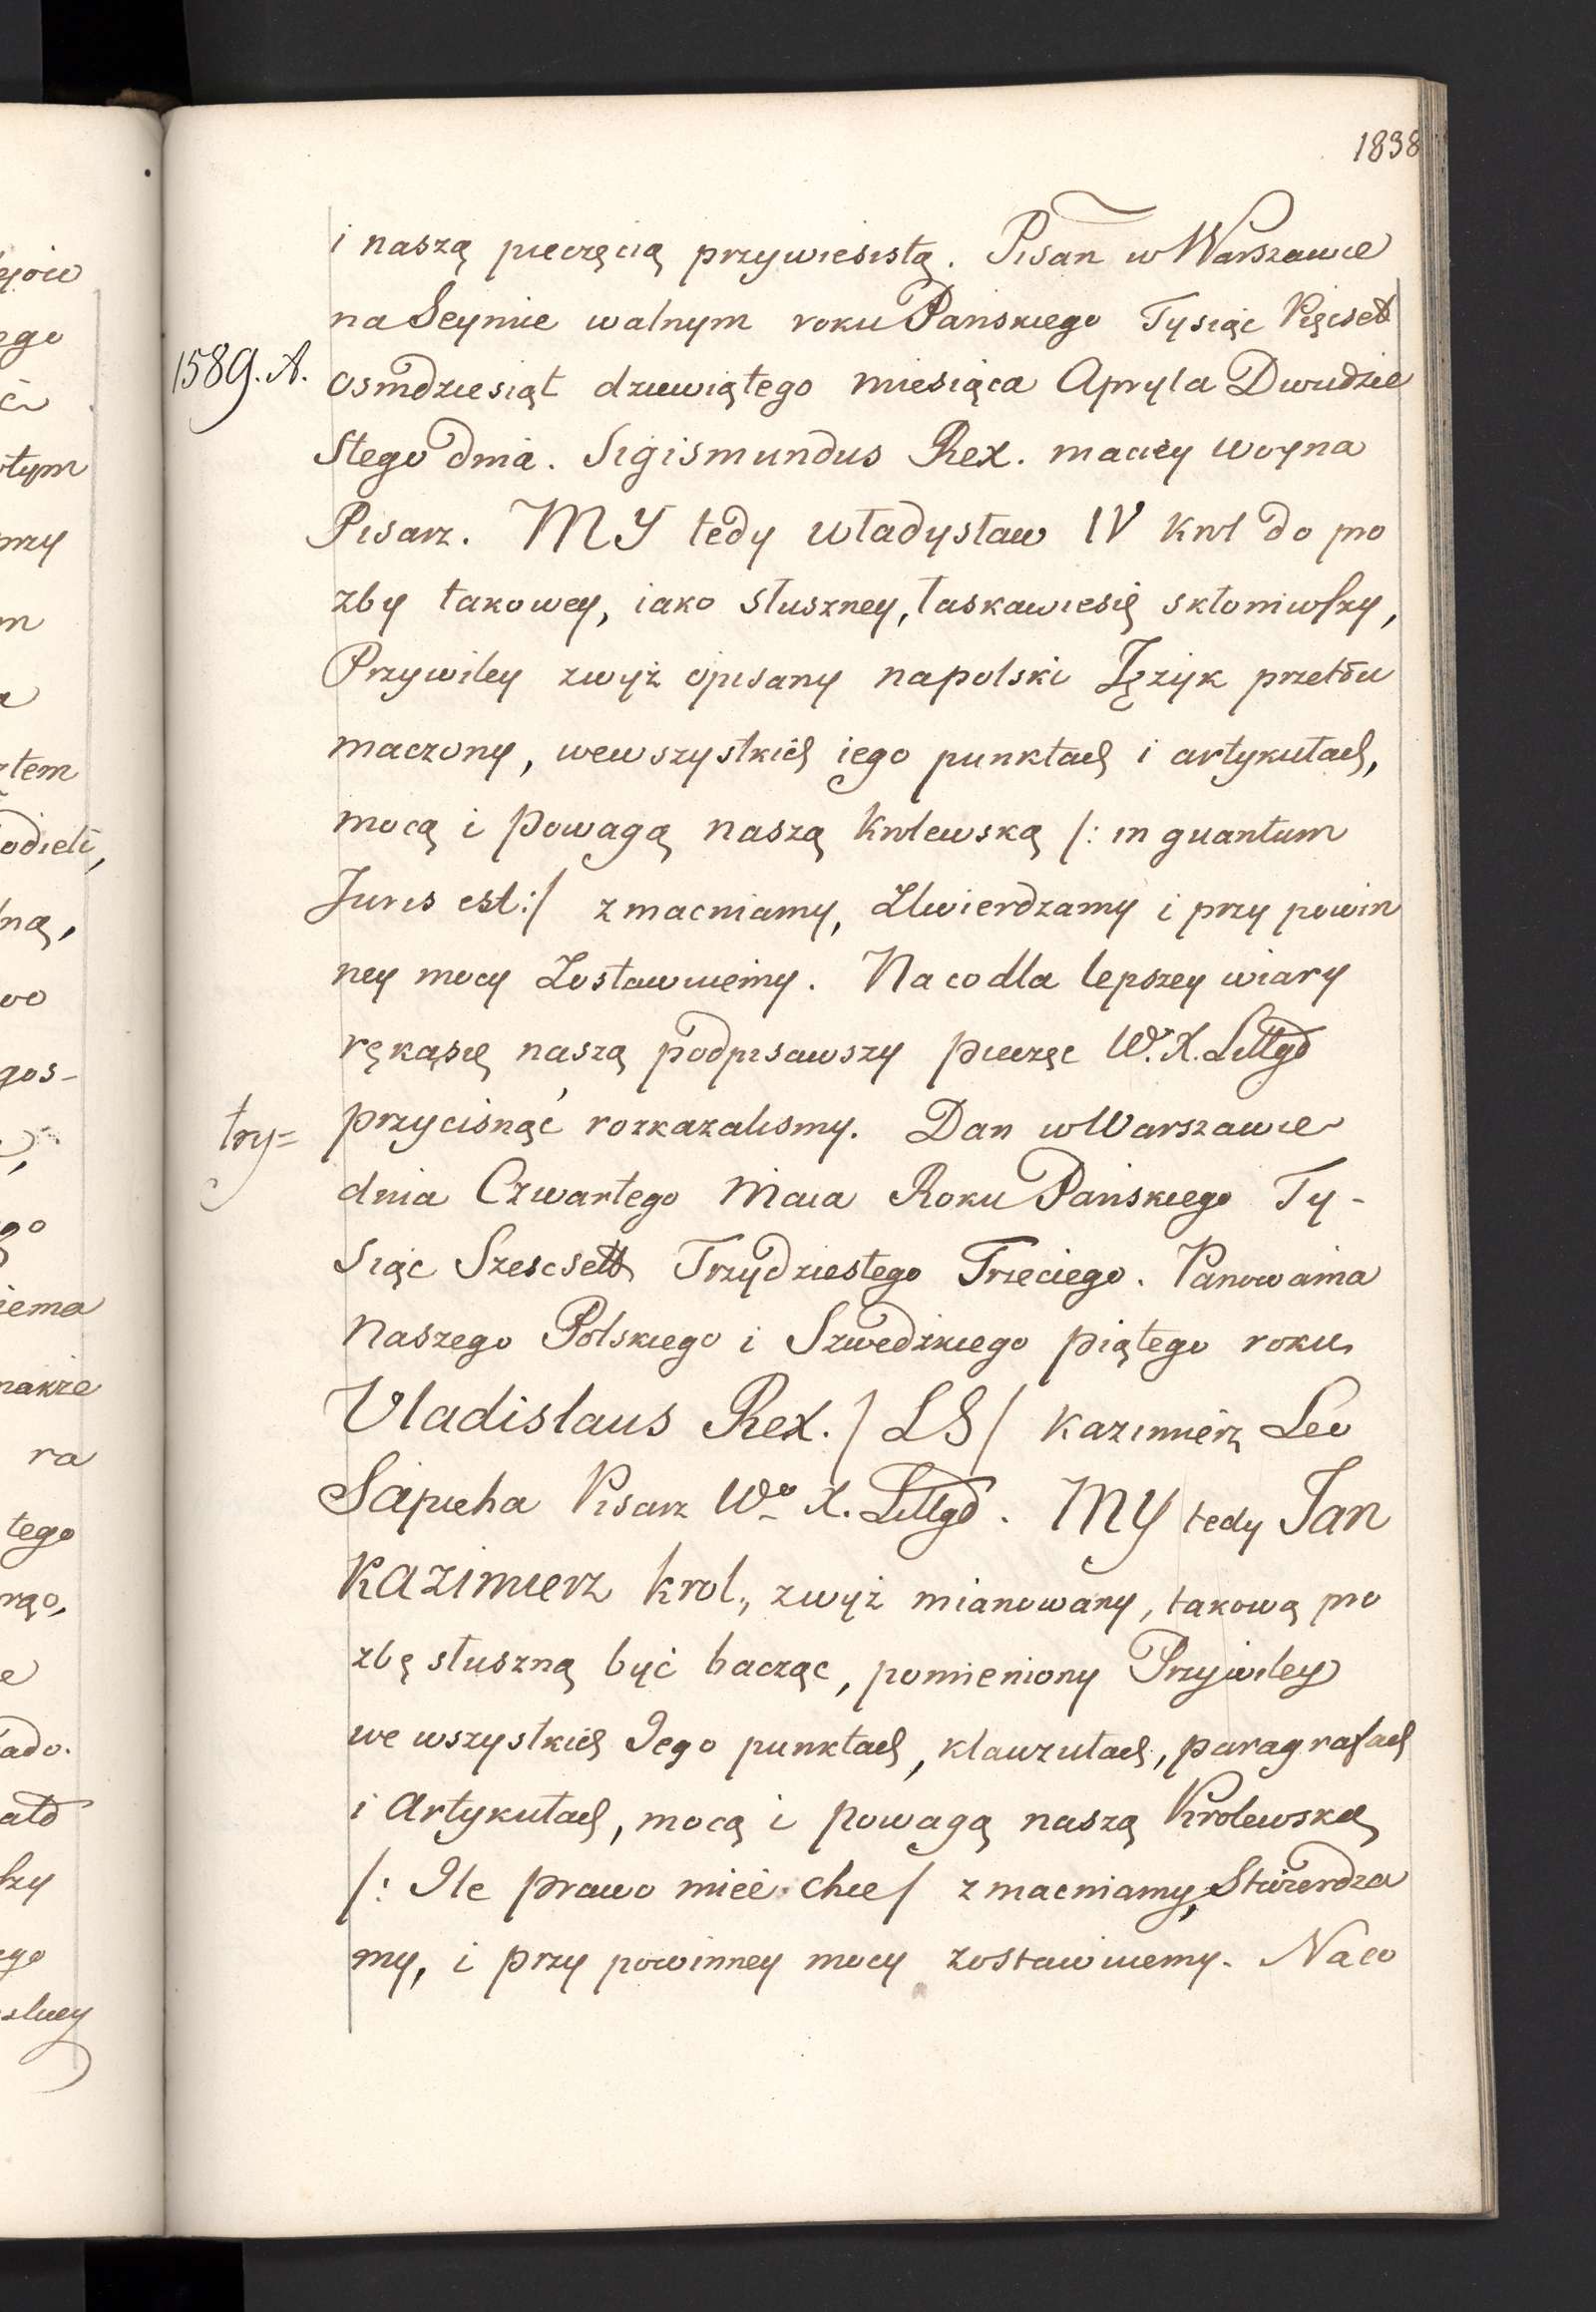 1838
i naszą pieczęcią przywiesistą. Pisan w Warszawie
na Seymie walnym roku Pańskiego Tysiąc Pięcset
1589. A.
osmdziesiąt dziewiątego miesiąca Apryla Dwudzie
stego dnia. Sigismundus Rex. maciey woyna
Pisarz. MY tedy władysław IV krol do pro
zby takowey, iako słuszney, łaskawiesię skłoniwszy,
Przywiley zwyż opisany napolski Język przetłu
maczony, wewszystkich iego punktach i artykułach,
mocą i Powagą naszą krolewską /: in quantum
Juris est:/ zmacniamy, Ztwierdzamy i przy powin
ney mocy Zostawuiemy. Na co dla lepszey wiary
rękąsię naszą podpisawszy pieczęc W. X. Littgo
try=
przycisnąć rozkazalismy. Dan w Warszawie
dnia Czwartego Maia Roku Pańskiego Ty-
siąc Szescsett Trzydziestego Trzeciego. Panowania
Naszego Polskiego i Szwedzkiego piątego roku
Vladislaus Rex. / LS / kazimierz Leo
Sapieha Pisarz Wo X. Littgo. MY tedy Jan
Kazimierz krol, zwyż mianowany, takową pro
zbę słuszną być bacząc, pomieniony Przywiley
we wszystkich Jego punktach, klauzułach, paragrafach
i Artykułach, mocą i powagą naszą Krolewską
/: Ile prawo mieć chce / zmacniamy, Stwierdza
my, i przy powinney mocy zostawuiemy. Na co